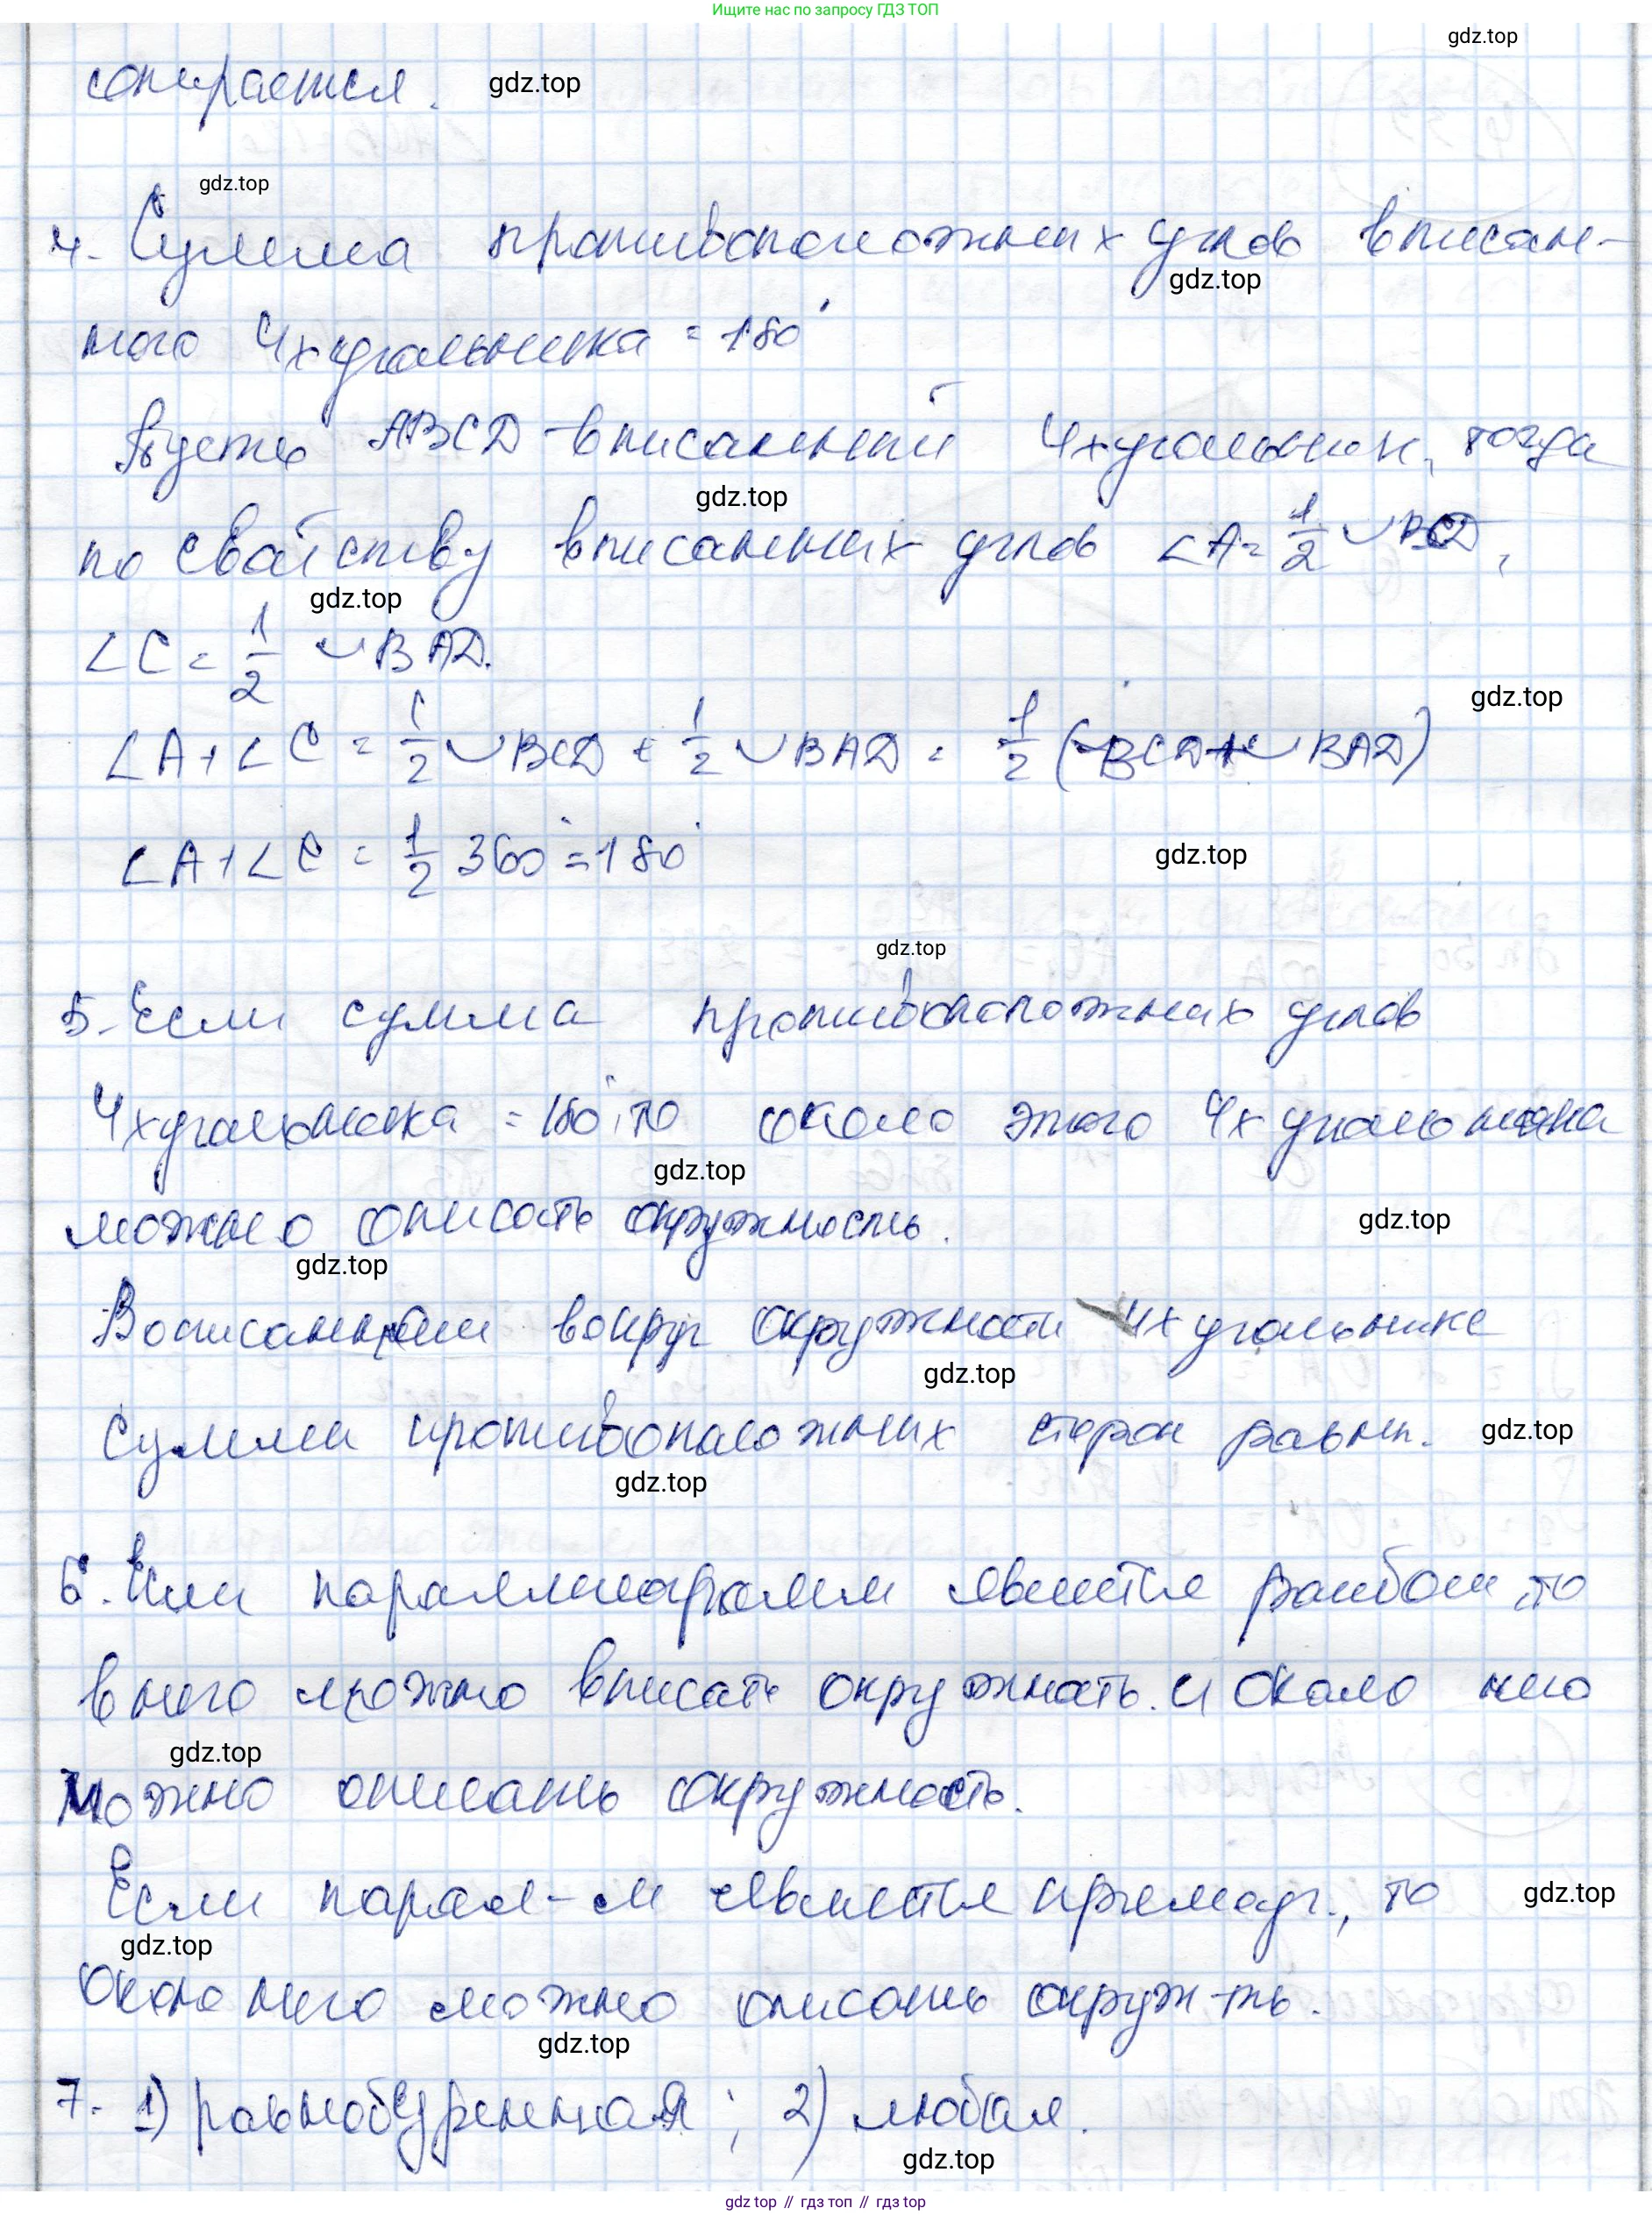 Ищите нас по запросу ГДЗ ТОП
gdz.top
опирается. gdz.top
gdz.top
4. Сумма противоположных углов вписан-
gdz.top
ного 4хугольника = 180°
Пусть ABCD - вписанный 4хугольник, тогда
gdz.top
по свойству вписанных углов ∠A = 1/2 ◡BCD,
gdz.top
∠C = 1/2 ◡BAD.
gdz.top
∠A + ∠C = 1/2 ◡BCD + 1/2 ◡BAD = 1/2 (◡BCD + ◡BAD)
∠A + ∠C = 1/2 360° = 180°
gdz.top
gdz.top
5. Если сумма противоположных углов
4хугольника = 180°, то около этого 4хугольника
gdz.top
можно описать окружность.
gdz.top
gdz.top
вокруг окружности 4хугольнике
gdz.top
Суммы противоположных сторон равны.
gdz.top
gdz.top
6. Если параллелограмм является ромбом, то
в него можно вписать окружность. и около него
gdz.top
можно описать окружность.
Если парал-м является прямоуг., то
gdz.top
gdz.top
Около него можно описать окруж-ть.
gdz.top
7. 1) равнобедренная; 2) любая.
gdz.top
gdz top // гдз топ // гдз top